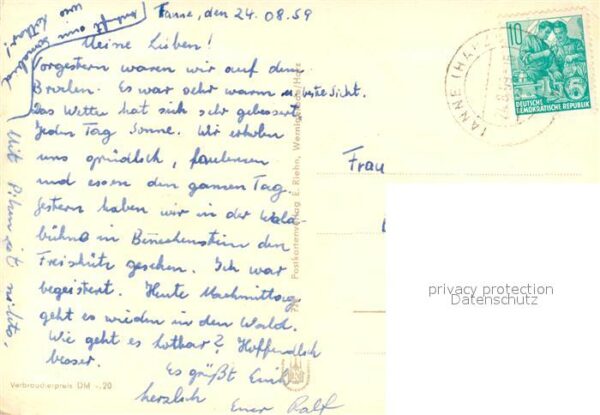 Tanne, den 24.08.59
Meine Lieben!
Vorgestern waren wir auf dem
Brocken. Es war sehr warm u. beste Sicht.
Das Wetter hat sich sehr gebessert.
Jeden Tag Sonne. Wir erholen
uns gründlich, faulenzen
und essen den ganzen Tag.
Gestern haben wir in der Wald-
bühne in Benneckenstein den
Freischütz gesehen. Ich war
begeistert. Heute Nachmittag
geht es wieder in den Wald.
Wie geht es Lothar? Hoffendlich
besser.
Es grüßt Euch
herzlich
Euer Ralf
Mit
Frau
Postkartenverlag E. Riehn, Wernigerode/Harz
Verbraucherpreis DM -.20
TANNE (HARZ)
10
DEUTSCHE
DEMOKRATISCHE REPUBLIK
privacy protection
Datenschutz